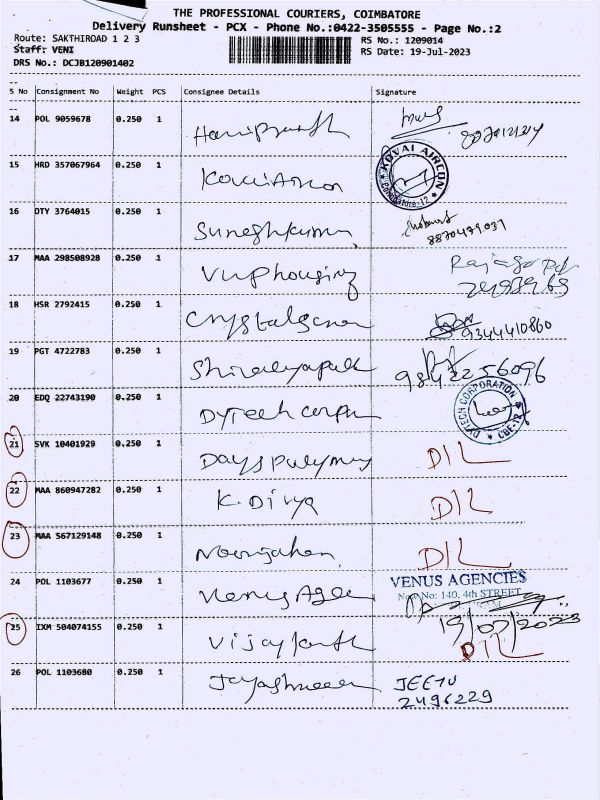 THE PROFESSIONAL COURIERS, COIMBATORE
Delivery Runsheet - PCX - Phone No.:0422-3505555 - Page No.:2
Route: SAKTHIROAD 1 2 3 RS No.: 1209014
Staff: VENI RS Date: 19-Jul-2023
DRS No.: DCJB120901402
S No Consignment No Weight PCS Consignee Details Signature
14 POL 9059678 0.250 1 Hariprasath
15 HRD 357067964 0.250 1 KOVAI AIRCON
Coimbatore-12
16 DTY 3764015 0.250 1 Sureshkumar
8870479031
17 MAA 298508928 0.250 1 Vnphousing
18 HSR 2792415 0.250 1 Crystalgranan 9344410860
19 PGT 4722783 0.250 1 98422 56096
20 EDQ 22743190 0.250 1 Dytech corpn DYTECH CORPORATION
CBE-12
21 SVK 10401929 0.250 1 DIL
22 MAA 860947282 0.250 1 K. Divya DIL
23 MAA 567129148 0.250 1 Noorjahan DIL
24 POL 1103677 0.250 1 Venus Agen VENUS AGENCIES
No: 140, 4th STREET
19/07/2023
25 IXM 504074155 0.250 1 Vijaykanth DIL
26 POL 1103680 0.250 1 Jayashreeee JEETU
2496229